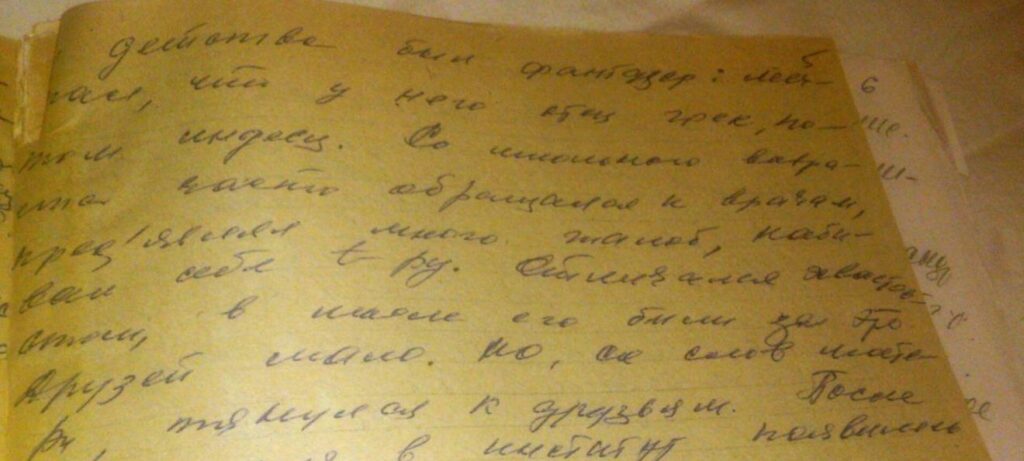 детстве был фантазер: меч-
тал, что у него отец грек, по-
том индеец. Со школьного возра-
ста часто обращался к врачам,
пред'являл много жалоб, наби-
вал себе t ру. Отличался хвастов-
ством, в школе его били за это
Друзей мало. Но, со слов мате
ри тянулся к друзьям. После
в институт появились